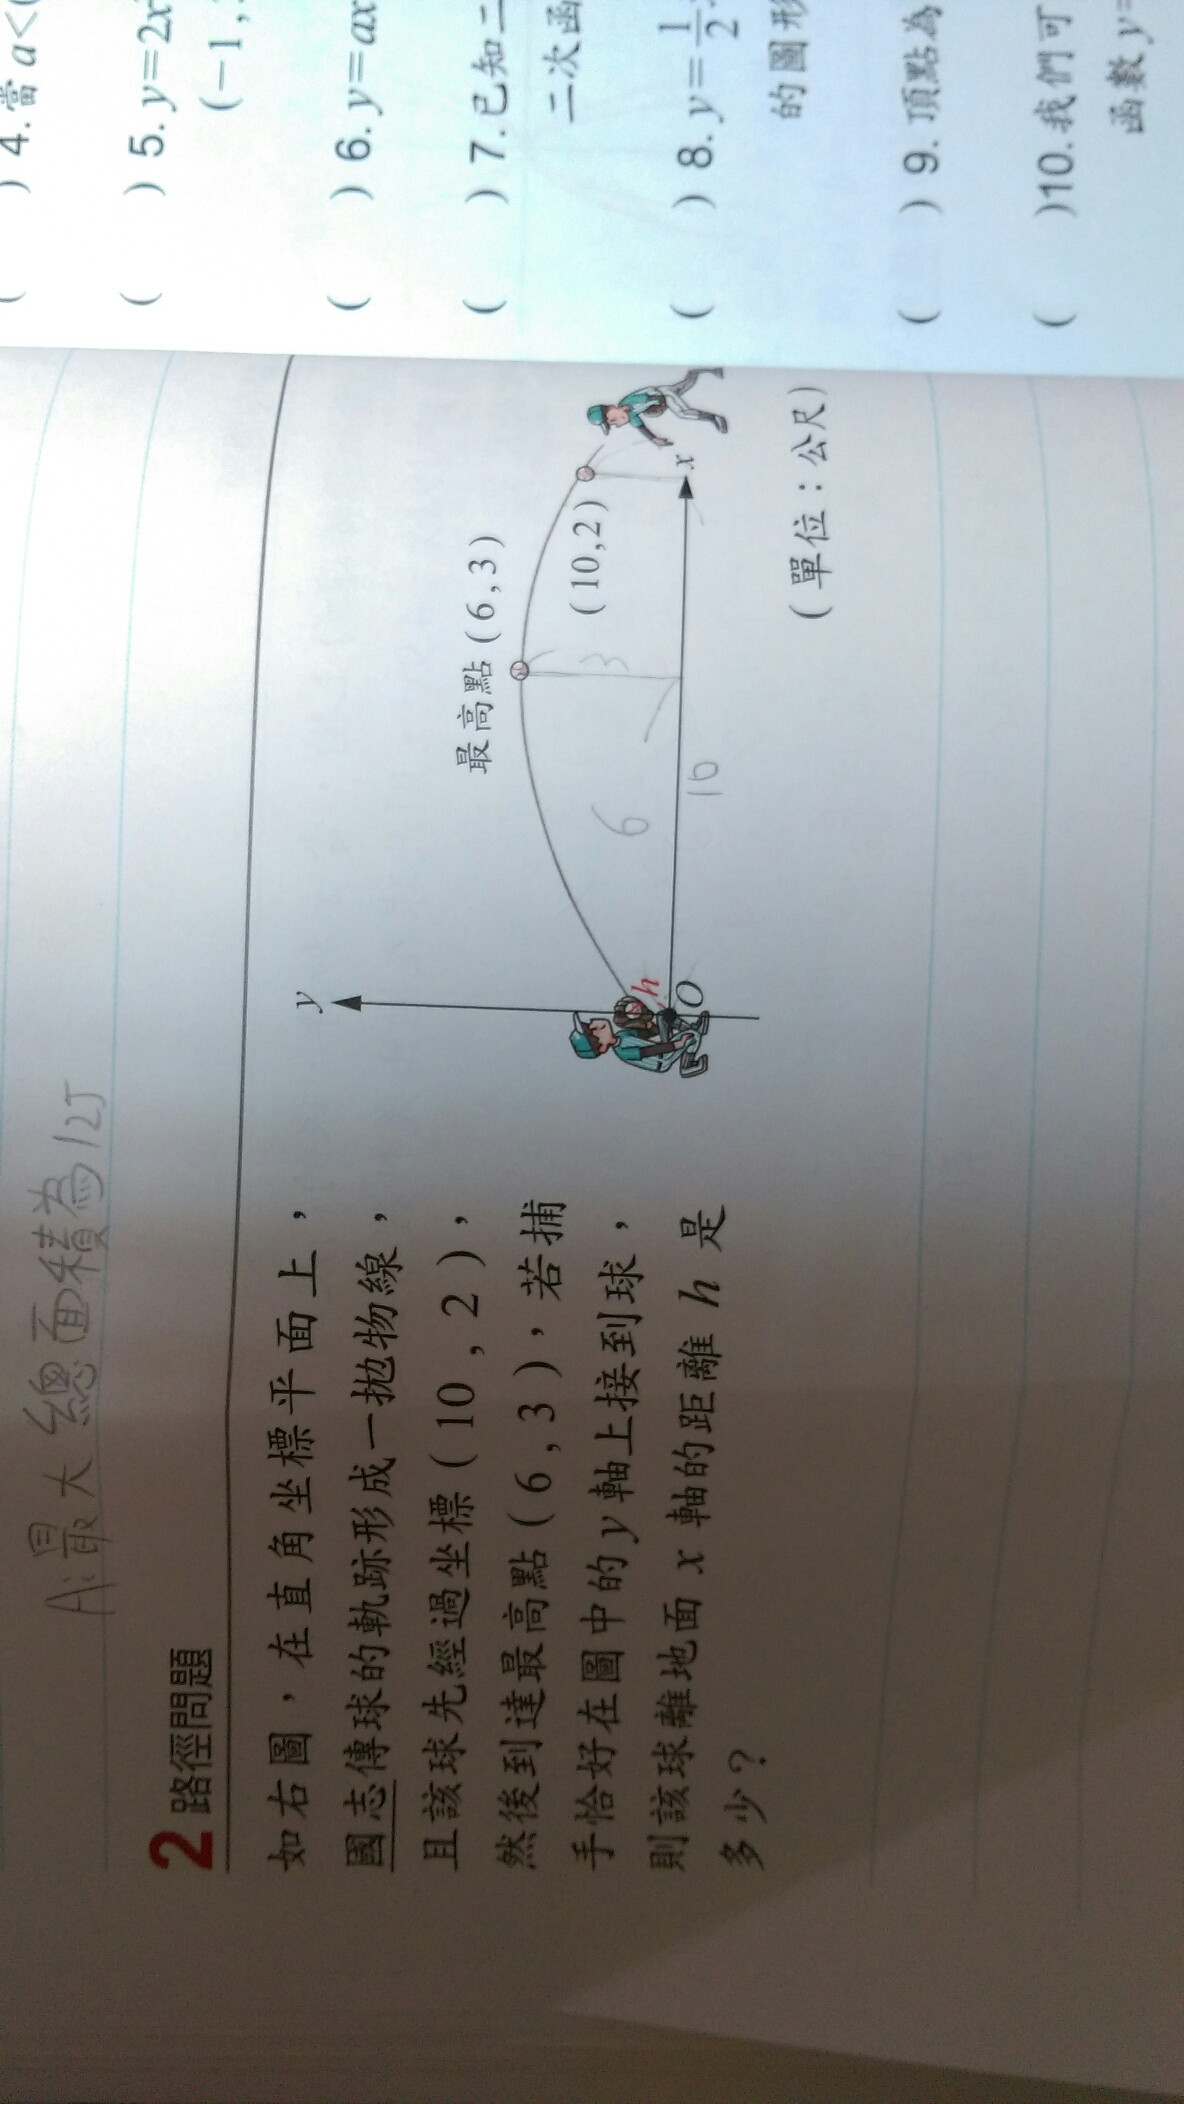 A:最大總面積為125
2 路徑問題
如右圖，在直角坐標平面上，
國志傳球的軌跡形成一拋物線，
且該球先經過坐標(10,2)，
然後到達最高點(6,3)，若捕
手恰好在圖中的y軸上接到球，
則該球離地面x軸的距離h是
多少？
y
最高點(6,3)
(10,2)
3
6
h
O
x
(單位：公尺)
) 4. 當a<
( ) 5. y=2x
(-1,
( ) 6. y=ax
( ) 7. 已知二
二次函
( ) 8. y=1/2
的圖形
( ) 9. 頂點為
( )10. 我們可
函數y=